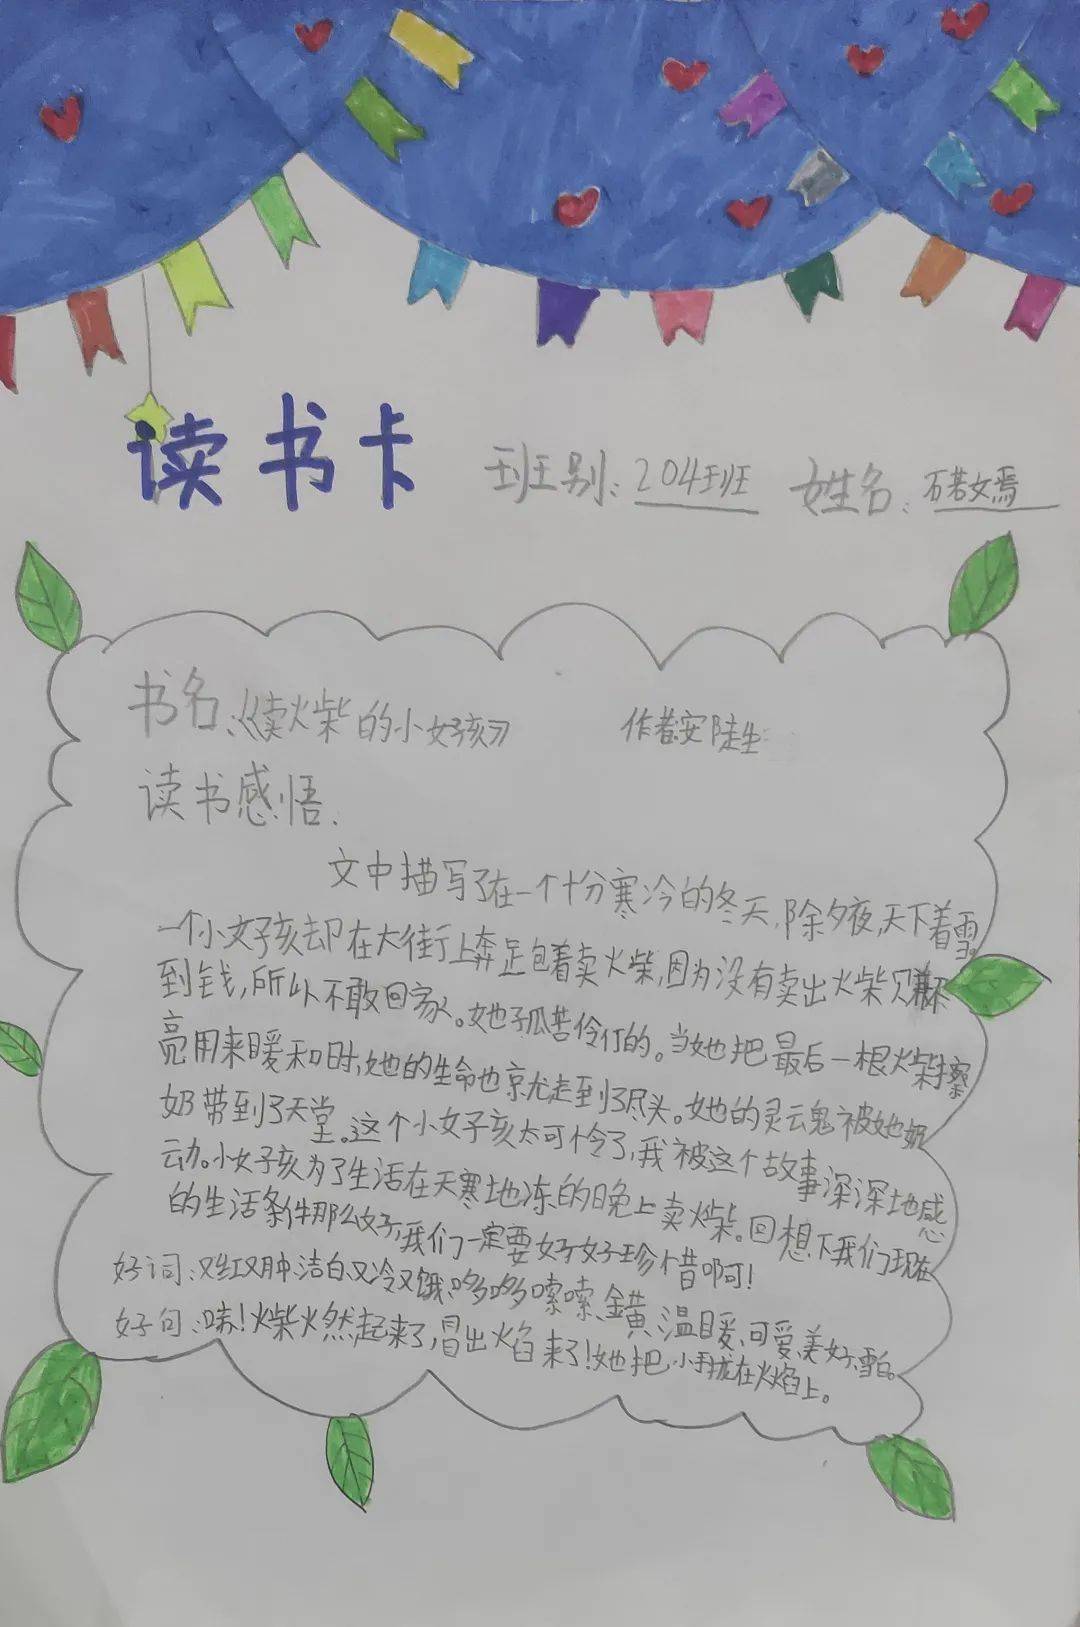 读书卡 班别:204班 姓名:石若嫣
书名:《卖火柴的小女孩》 作者:安陡生
读书感悟.
文中描写了在一个十分寒冷的冬天,除夕夜,天下着雪
一个小女孩却在大街上奔足包着卖火柴,因为没有卖出火柴
到钱,所以不敢回家。她孤苦伶仃的。当她把最后一根火柴擦
亮用来暖和时,她的生命也就走到了尽头。她的灵魂被她奶
奶带到了天堂。这个小女孩太可怜了,我被这个故事深深地感
动。小女孩为了生活在天寒地冻的晚上卖火柴。回想下我们现在
的生活条件那么好,我们一定要好好珍惜啊!
好词:又红又肿、洁白、又冷又饿、哆哆嗦嗦、温暖、可爱、美好、雪白。
好句:哧!火柴燃起来了,冒出火焰来了!她把小手拢在火焰上。